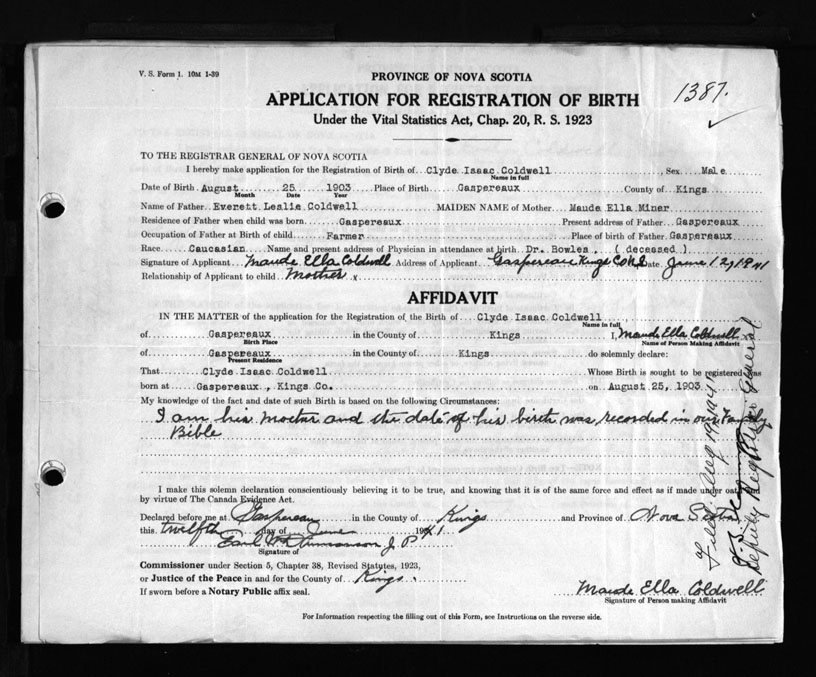 V. S. Form 1. 10M 1-39
PROVINCE OF NOVA SCOTIA
1387.
APPLICATION FOR REGISTRATION OF BIRTH
Under the Vital Statistics Act, Chap. 20, R. S. 1923
TO THE REGISTRAR GENERAL OF NOVA SCOTIA
I hereby make application for the Registration of Birth of Clyde Isaac Coldwell, Sex Male
Name in full
Date of Birth August 25 1903 Place of Birth Gaspereaux County of Kings
Month Date Year
Name of Father Everett Leslie Coldwell MAIDEN NAME of Mother Maude Ella Miner
Residence of Father when child was born Gaspereaux Present address of Father Gaspereaux
Occupation of Father at Birth of child Farmer Place of birth of Father Gaspereaux
Race Caucasian Name and present address of Physician in attendance at birth Dr. Bowles. (deceased)
Signature of Applicant Maude Ella Coldwell Address of Applicant Gaspereau Kings Co N.S Date June 12, 1941
Relationship of Applicant to child Mother x
AFFIDAVIT
IN THE MATTER of the application for the Registration of the Birth of Clyde Isaac Coldwell
Name in full
of Gaspereaux in the County of Kings I, Maude Ella Coldwell
Birth Place Name of Person Making Affidavit
of Gaspereaux in the County of Kings do solemnly declare:
Present Residence
That Clyde Isaac Coldwell Whose Birth is sought to be registered was
born at Gaspereaux, Kings Co. on August 25, 1903
My knowledge of the fact and date of such Birth is based on the following Circumstances:
I am his Moctar and the date of his birth was recorded in our Family
Bible
I make this solemn declaration conscientiously believing it to be true, and knowing that it is of the same force and effect as if made under oath and
by virtue of The Canada Evidence Act.
Declared before me at Gaspereau in the County of Kings and Province of Nova Scotia
this twelfth day of June 1941
Earl J. P.
Signature of
Commissioner under Section 5, Chapter 38, Revised Statutes, 1923,
or Justice of the Peace in and for the County of Kings.
If sworn before a Notary Public affix seal.
Maude Ella Coldwell
Signature of Person making Affidavit
For Information respecting the filling out of this Form, see Instructions on the reverse side.
Filed Aug 19, 1941
Deputy Registrar General